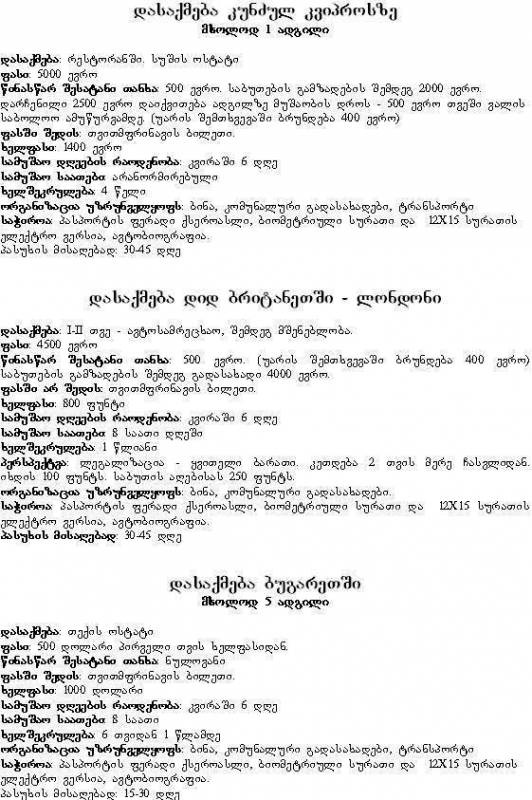 დასაქმება კუნძულ კვიპროსზე
მხოლოდ 1 ადგილი
დასაქმება: რესტორანში. სუშის ოსტატი
ფასი: 5000 ევრო
წინასწარ შესატანი თანხა: 500 ევრო. საბუთების გამზადების შემდეგ 2000 ევრო.
დარჩენილი 2500 ევრო დაიქვითება ადგილზე მუშაობის დროს - 500 ევრო თვეში ვალის
საბოლოო ამუწურვამდე. (უარის შემთხვევაში ბრუნდება 400 ევრო)
ფასში შედის: თვითმფრინავის ბილეთი.
ხელფასი: 1400 ევრო
სამუშაო დღეების რაოდენობა: კვირაში 6 დღე
სამუშაო საათები: არანორმირებული
ხელშეკრულება: 4 წელი
ორგანიზაცია უზრუნველყოფს: ბინა, კომუნალური გადასახადები, ტრანსპორტი
საჭიროა: პასპორტის ფერადი ქსეროასლი, ბიომეტრიული სურათი და 12X15 სურათის
ელექტრო ვერსია, ავტობიოგრაფია.
პასუხის მისაღებად: 30-45 დღე
დასაქმება დიდ ბრიტანეთში - ლონდონი
დასაქმება: I-II თვე - ავტოსამრეცხაო, შემდეგ მშენებლობა.
ფასი: 4500 ევრო
წინასწარ შესატანი თანხა: 500 ევრო. (უარის შემთხვევაში ბრუნდება 400 ევრო)
საბუთების გამზადების შემდეგ გადასახადი 4000 ევრო.
ფასში არ შედის: თვითმფრინავის ბილეთი.
ხელფასი: 800 ფუნტი
სამუშაო დღეების რაოდენობა: კვირაში 6 დღე
სამუშაო საათები: 8 საათი დღეში
ხელშეკრულება: 1 წლიანი
პერსპექტვა: ლეგალიზაცია - ყვითელი ბარათი. კეთდება 2 თვის მერე ჩასვლიდან.
იხდის 100 ფუნტს. საბუთის აღებისას 250 ფუნტს.
ორგანიზაცია უზრუნველყოფს: ბინა, კომუნალური გადასახადები.
საჭიროა: პასპორტის ფერადი ქსეროასლი, ბიომეტრიული სურათი და 12X15 სურათის
ელექტრო ვერსია, ავტობიოგრაფია.
პასუხის მისაღებად: 30-45 დღე
დასაქმება ბუგარეთში
მხოლოდ 5 ადგილი
დასაქმება: თექის ოსტატი
ფასი: 500 დოლარი პირველი თვის ხელფასიდან.
წინასწარ შესატანი თანხა: ნულოვანი
ფასში შედის: თვითმფრინავის ბილეთი.
ხელფასი: 1000 დოლარი
სამუშაო დღეების რაოდენობა: კვირაში 6 დღე
სამუშაო საათები: 8 საათი
ხელშეკრულება: 6 თვიდან 1 წლამდე
ორგანიზაცია უზრუნველყოფს: ბინა, კომუნალური გადასახადები, ტრანსპორტი
საჭიროა: პასპორტის ფერადი ქსეროასლი, ბიომეტრიული სურათი და 12X15 სურათის
ელექტრო ვერსია, ავტობიოგრაფია.
პასუხის მისაღებად: 15-30 დღე